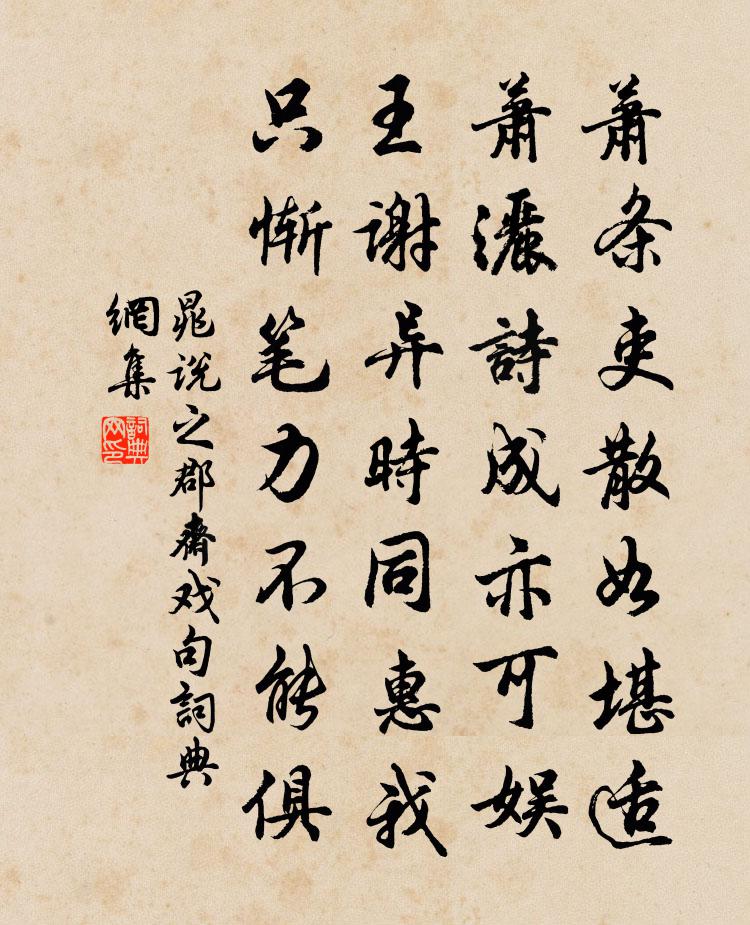 萧条吏散如堪适
萧灑詩成亦可娱
王谢异時同惠我
只惭笔力不能俱
晁说之郡齋戏句詞典
網集
詞典
网印